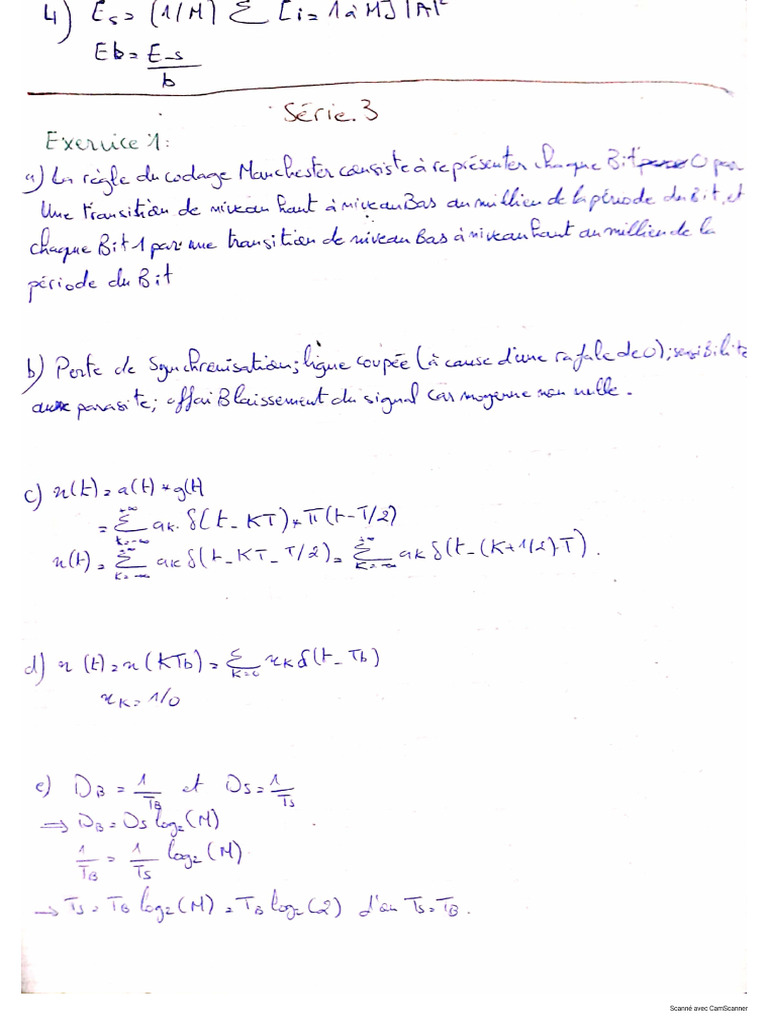 4) Es = (1/M) Σ [i = 1 à M] |A|²
Eb = E-s / b
Série.3
Exercice 1:
a) La règle du codage Manchester consiste à représenter chaque Bit 0 par
Une transition de niveau haut à niveau Bas au millieu de la période du Bit, et
chaque Bit 1 par une transition de niveau Bas à niveau haut au millieu de la
période du Bit
b) Perte de Synchronisation; ligne coupée (à cause d'une rafale de 0); sensibilité
aux parasite; affaiBlaissement du signal car moyenne non nulle.
c) x(t) = a(t) * g(t)
= Σ_{k=-∞}^{+∞} ak. δ(t - KT) * Π(t - T/2)
x(t) = Σ_{K=-∞}^{+∞} ak δ(t - KT - T/2) = Σ_{K=-∞}^{+∞} ak δ(t - (K+1/2).T).
d) x(t) = x(KTb) = Σ_{K=0} xK δ(t - Tb)
xK = 1/0
e) DB = 1/TB et DS = 1/TS
⇒ DB = DS log₂(M)
1/TB = 1/TS log₂(M)
→ TS = TB log₂(M) = TB log₂(2) d'ou TS = TB.
Scanné avec CamScanner